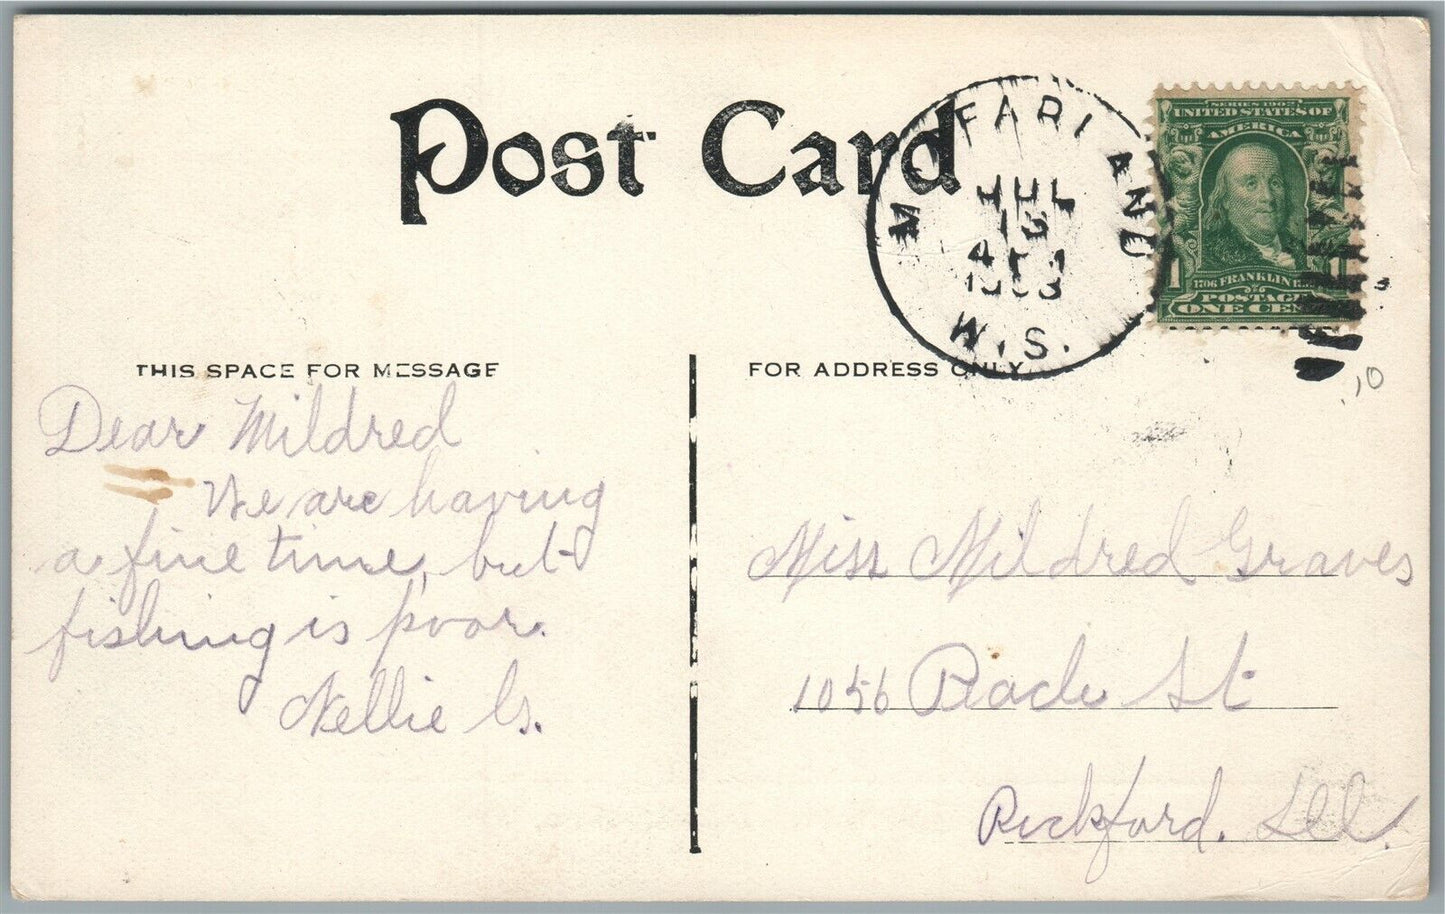 Post Card
McFARLAND
JUL
13
4 PM
1908
WIS.
SERIES 1902
UNITED STATES OF
AMERICA
1 1
1706 FRANKLIN
POSTAGE
ONE CENT
THIS SPACE FOR MESSAGE
FOR ADDRESS ONLY
,10
Dear Mildred
We are having
a fine time, but
fishing is poor.
Nellie G.
Miss Mildred Graves
1056 St
Rockford. Ill.